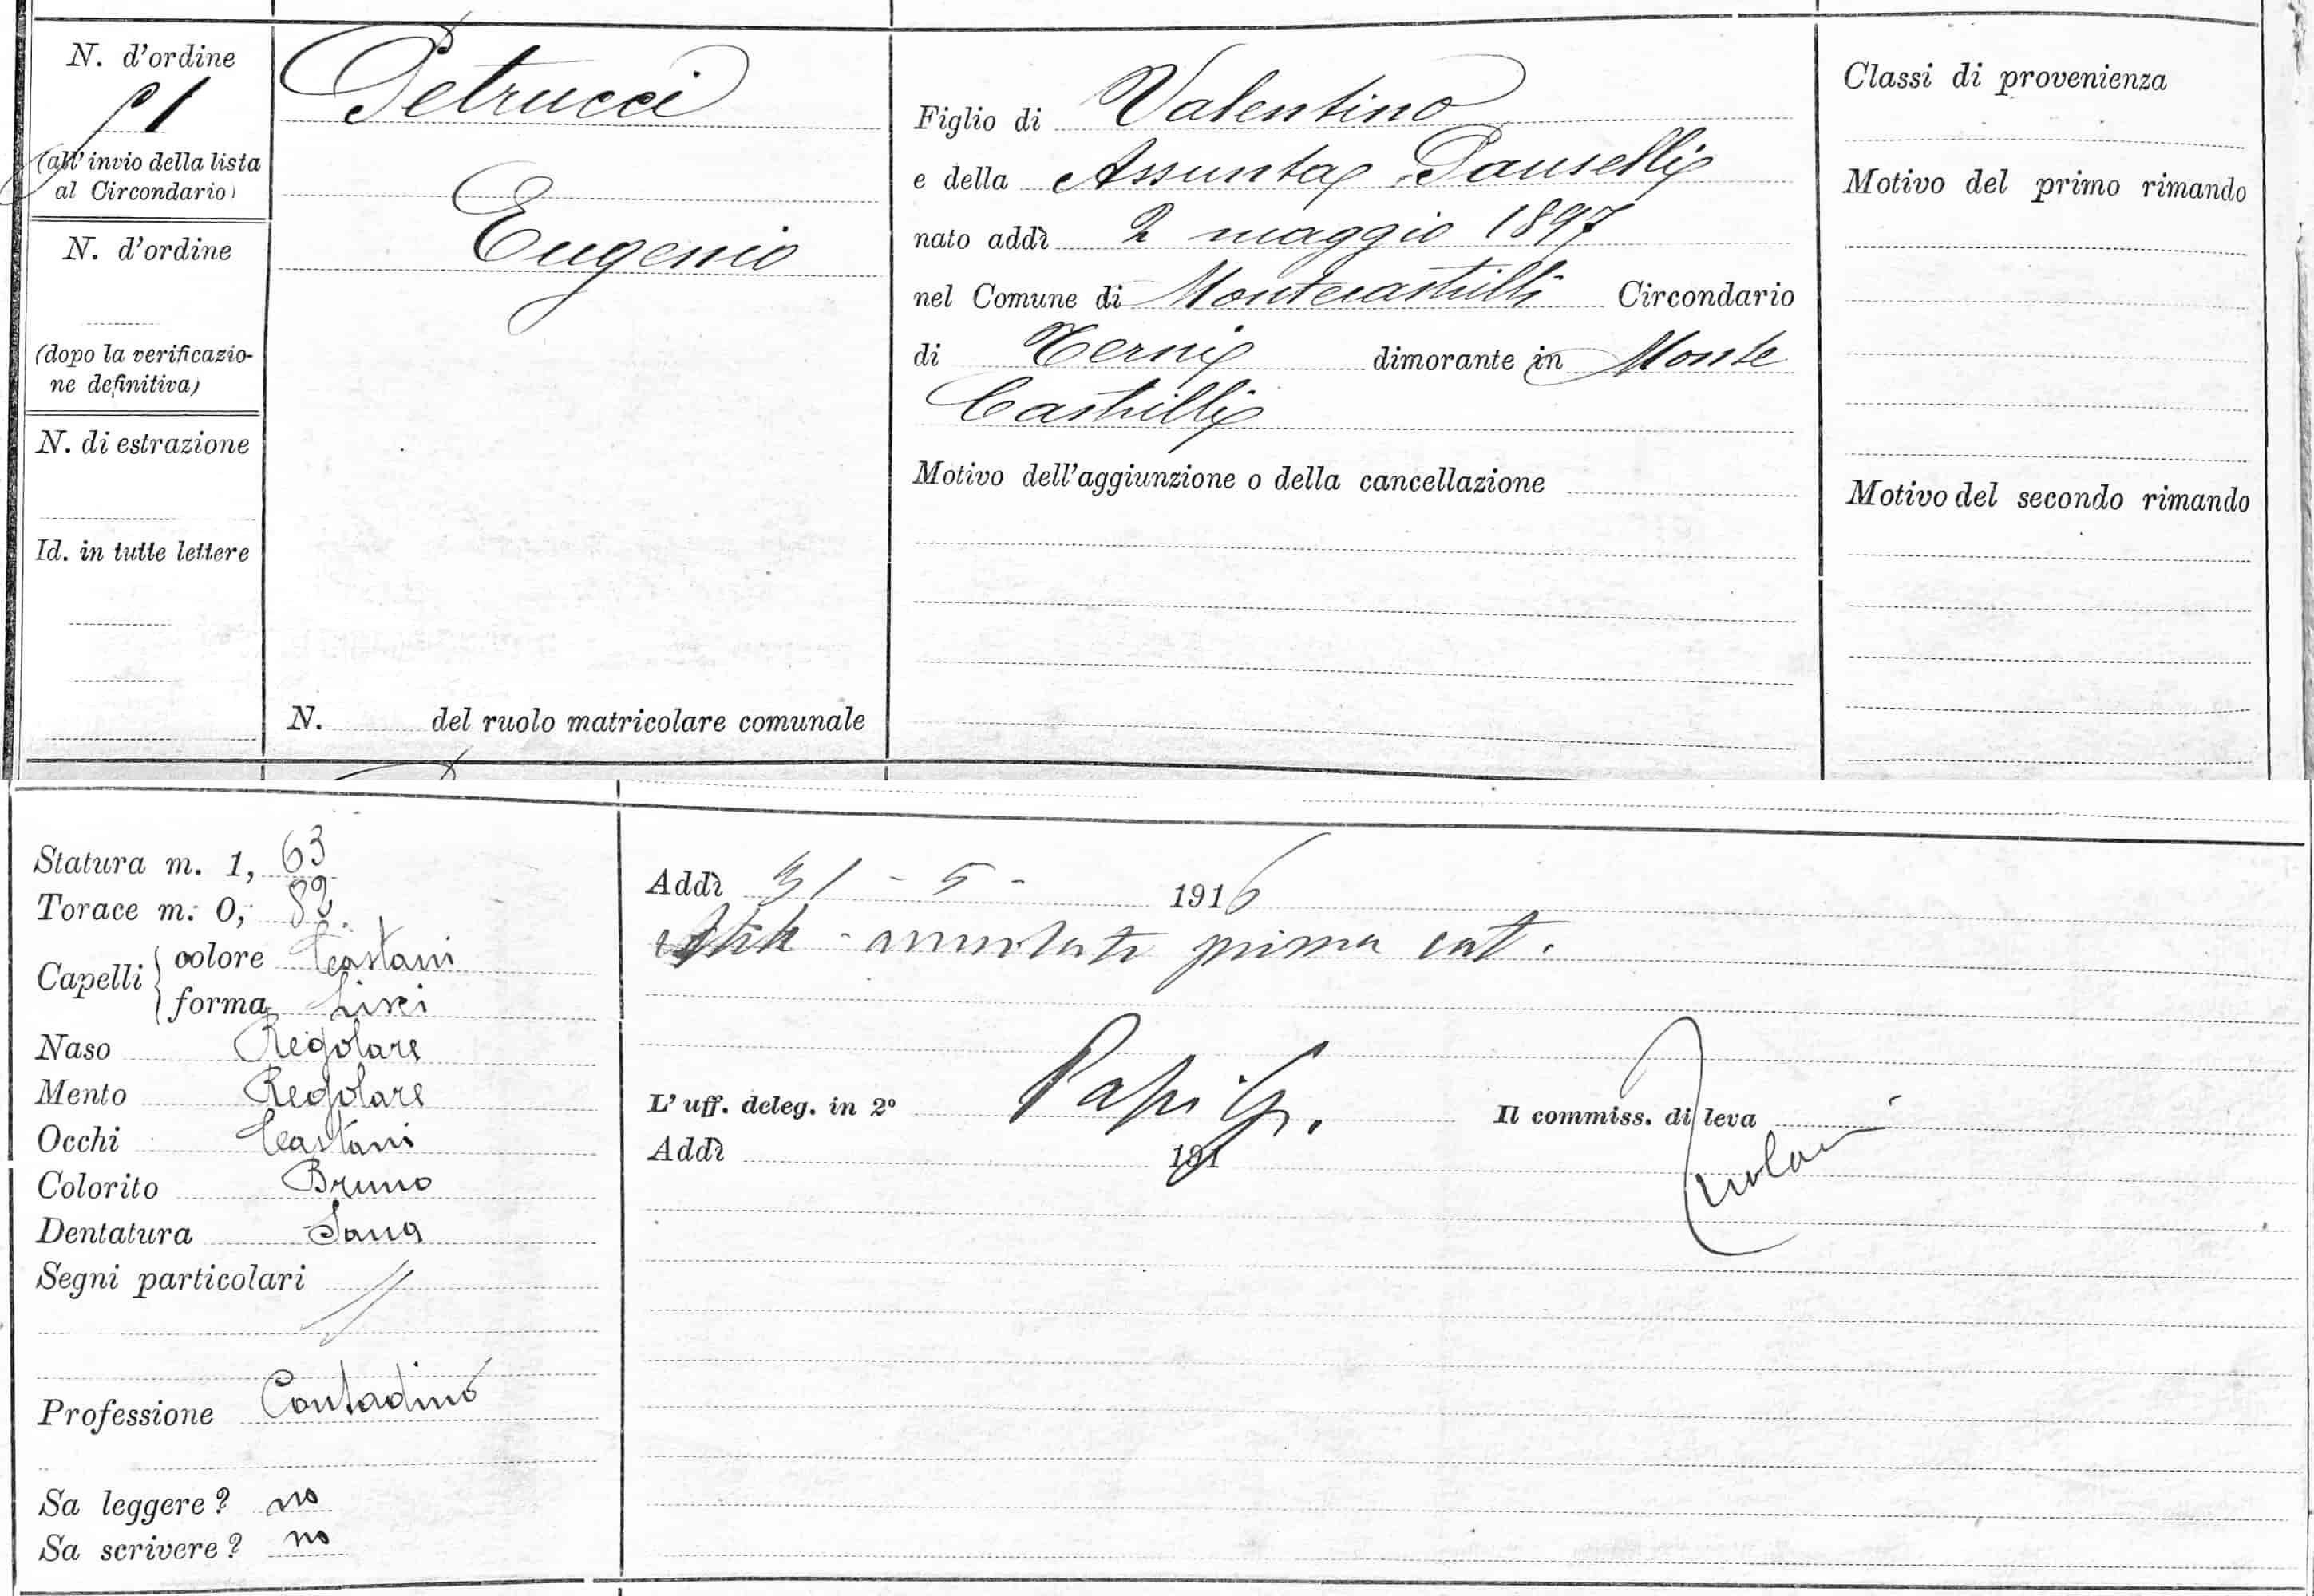 N. d'ordine
91
(all'invio della lista
al Circondario)
N. d'ordine
(dopo la verificazio-
ne definitiva)
N. di estrazione
Id. in tutte lettere
Petrucci
Eugenio
N. del ruolo matricolare comunale
Figlio di Valentino
e della Assunta Pauselli
nato addì 2 maggio 1897
nel Comune di Montecastrilli Circondario
di Terni dimorante in Monte
Castrilli
Motivo dell'aggiunzione o della cancellazione
Classi di provenienza
Motivo del primo rimando
Motivo del secondo rimando
Statura m. 1, 63
Torace m. 0, 82
Capelli colore Castani
forma Lisci
Naso Regolare
Mento Regolare
Occhi Castani
Colorito Bruno
Dentatura Sana
Segni particolari
Professione Contadino
Sa leggere? no
Sa scrivere? no
Addì 31 - 5 - 1916
prima cat.
L'uff. deleg. in 2° Papi G.
Il commiss. di leva
Addì 191